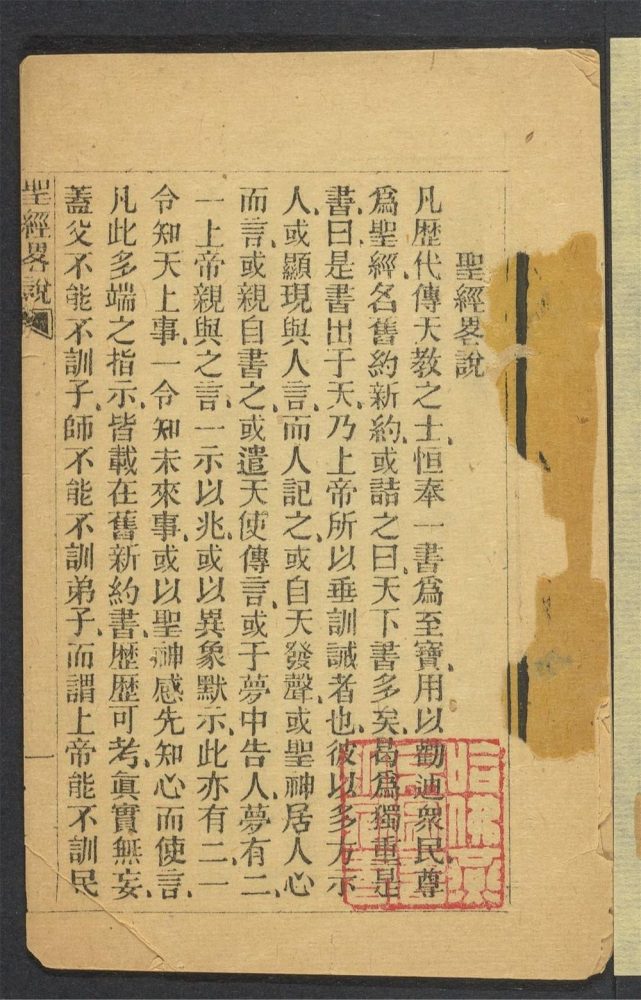 聖經畧說
凡歷代傳天教之士、恒奉一書爲至寶、用以勸迪衆民、尊
爲聖經、名舊約新約、或詰之曰、天下書多矣、曷爲獨重是
書、曰、是書出于天、乃上帝所以垂訓誡者也、彼以多方示
人、或顯現與人言、而人記之、或自天發聲、或聖神居人心
而言、或親自書之、或遣天使傳言、或于夢中告人、夢有二、
一上帝親與之言、一示以兆、或以異象默示、此亦有二、一
令知天上事、一令知未來事、或以聖神感先知心而使言、
凡此多端之指示、皆載在舊新約書、歷歷可考、眞實無妄、
蓋父不能不訓子、師不能不訓弟子、而謂上帝能不訓民
聖經畧說
一